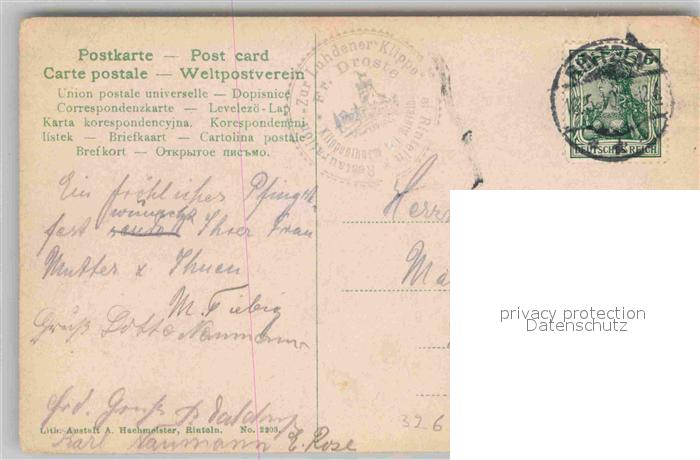 Postkarte — Post card
Carte postale — Weltpostverein
Union postale universelle — Dopisnice
Correspondenzkarte — Levelező-Lap
Karta korespondencyjna. Korespondenční
lístek — Briefkaart — Cartolina postale
Brefkort — Открытое письмо.
"Zur Luhdener Klippe"
Fr. Droste
bei Rinteln
DEUTSCHES REICH
Ein fröhliches Pfingst-
fest wünscht Ihrer Frau
Mutter & Ihnen
M. Fiebig
Gruß Lotte Naumann
Herrn
Frd. Gruß
Lith. Anstalt A. Hachmeister, Rinteln. No. 2203.
Karl Naumann E. Rose
326
privacy protection
Datenschutz